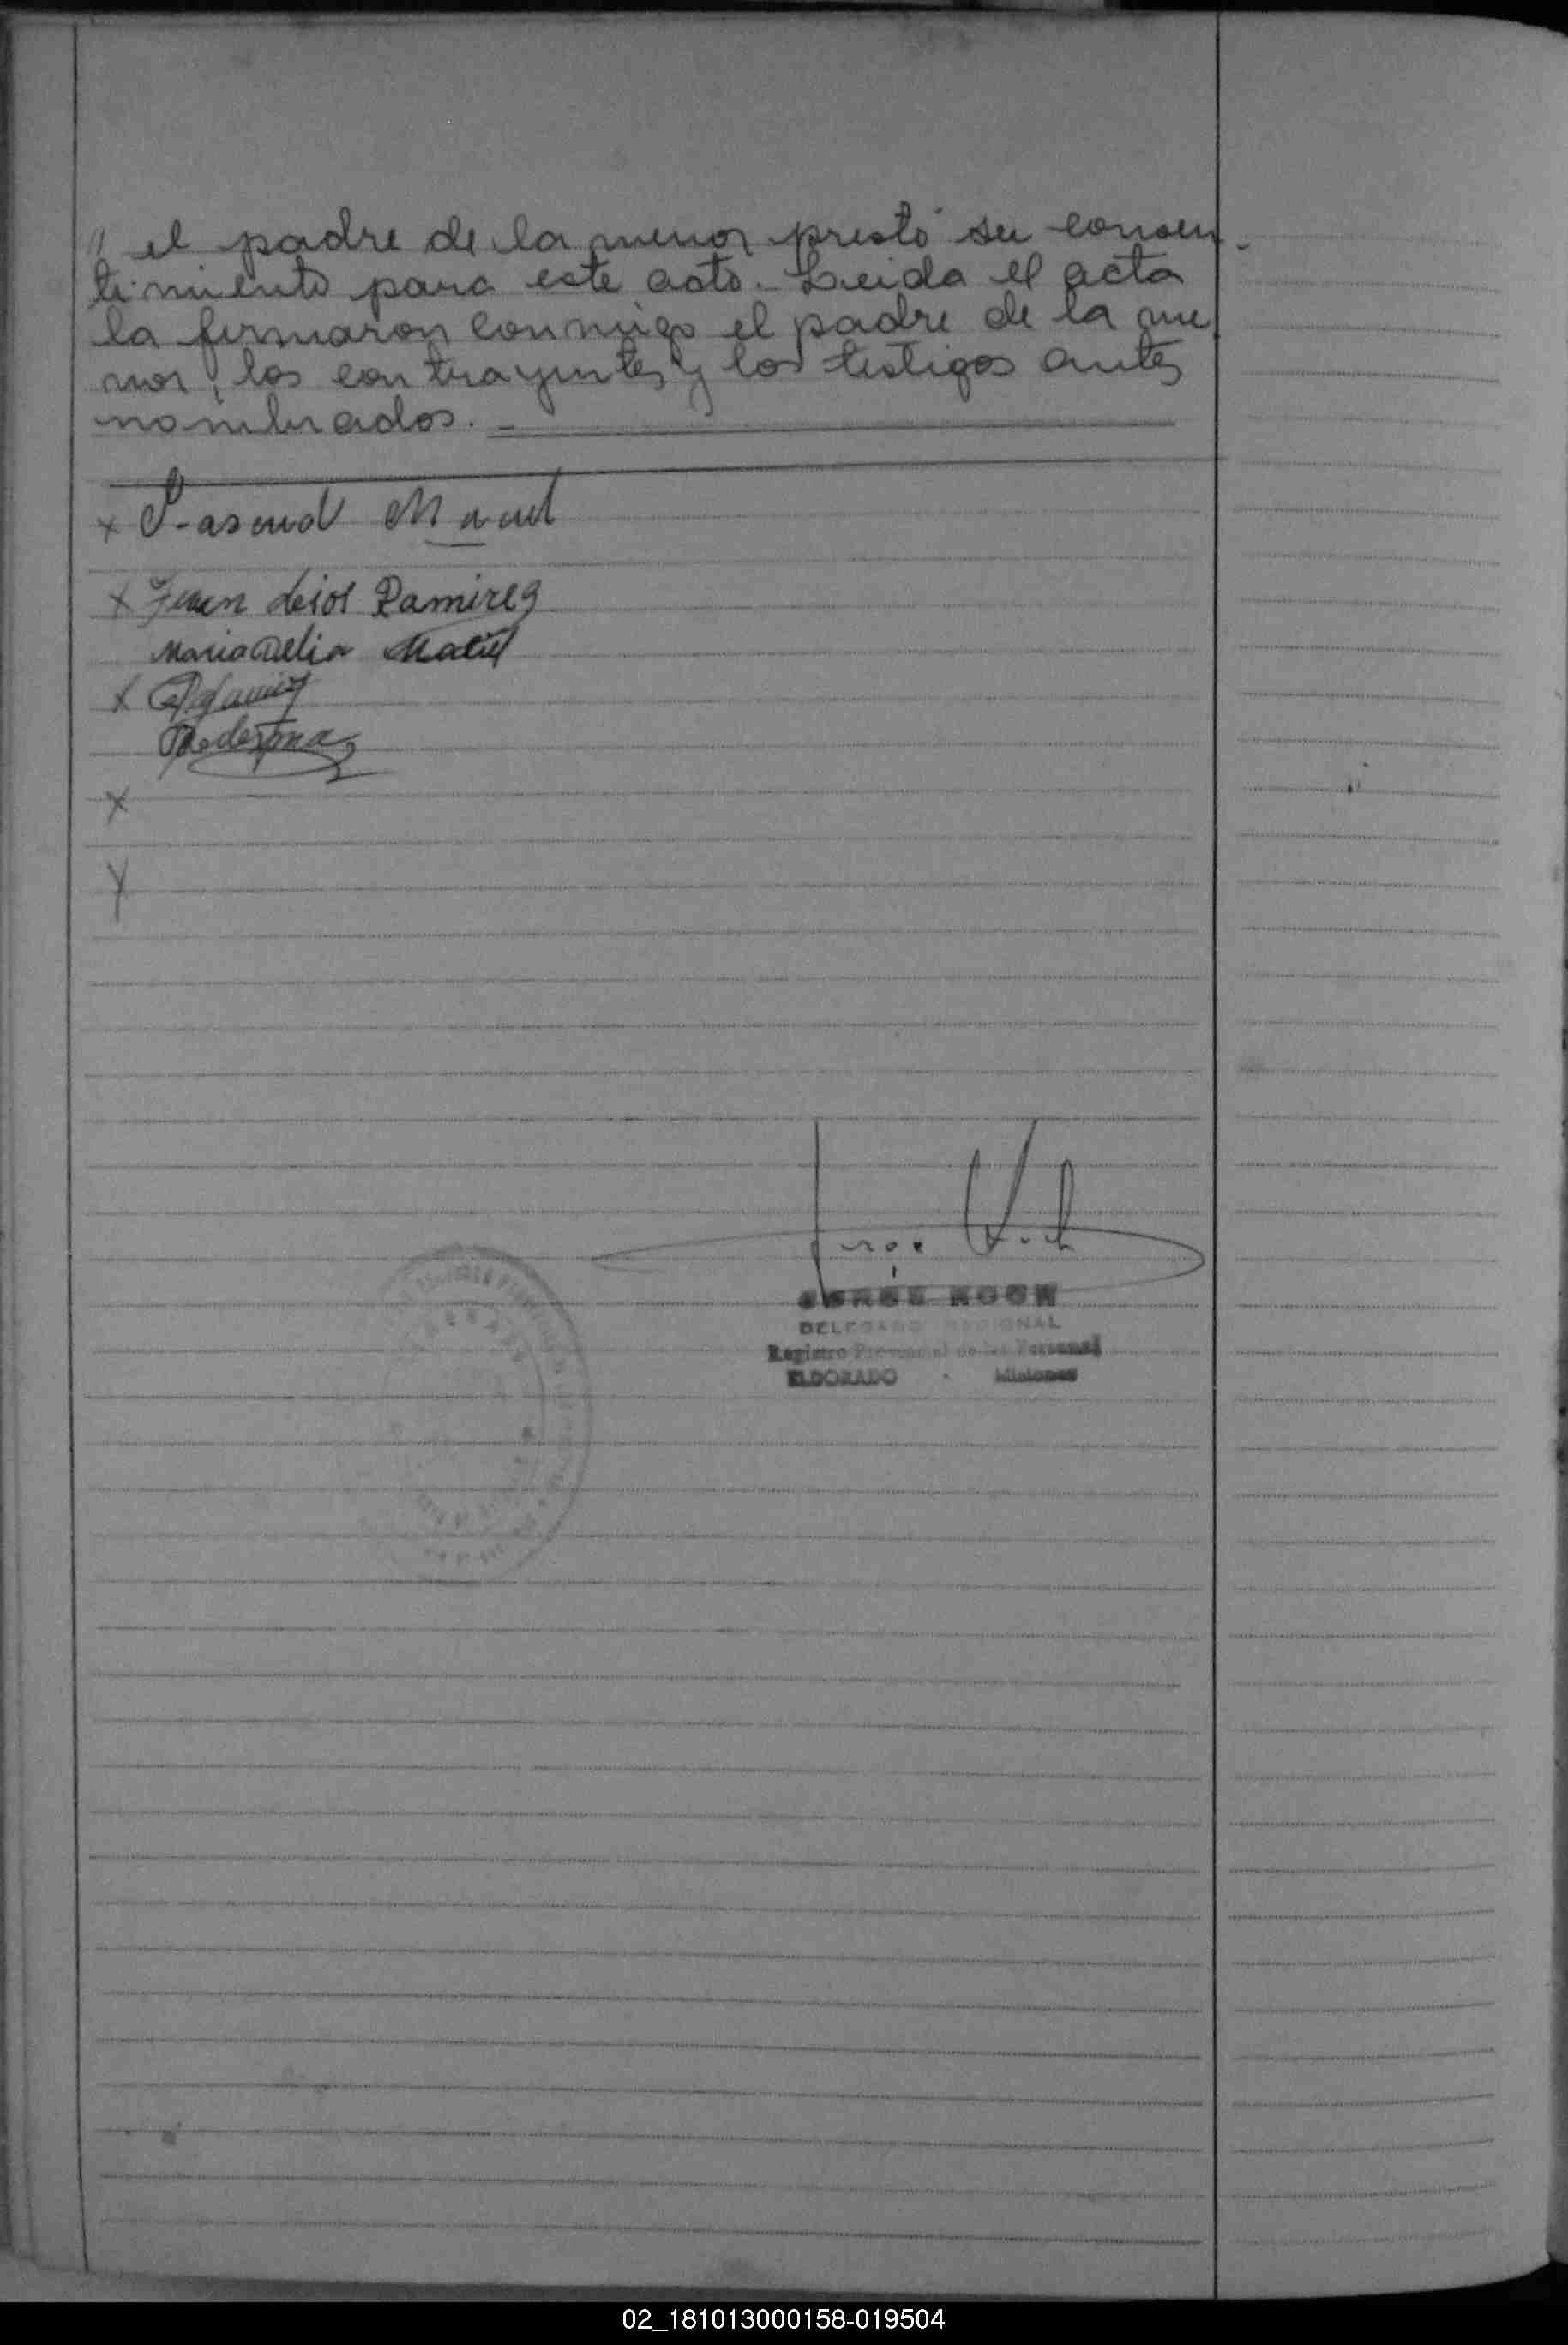 // el padre de la menor prestó su consen-
timiento para este acto.- Leida el acta
la firmaron conmigo el padre de la me
nor, los contrayentes y los testigos antes
nombrados. -
x
x Juan deios Ramirez
Maria Delia Maciel
x
Ledesma
x
x
JORGE KOCH
DELEGADO REGIONAL
Registro Provincial de las Personas
ELDORADO - Misiones
02_181013000158-019504